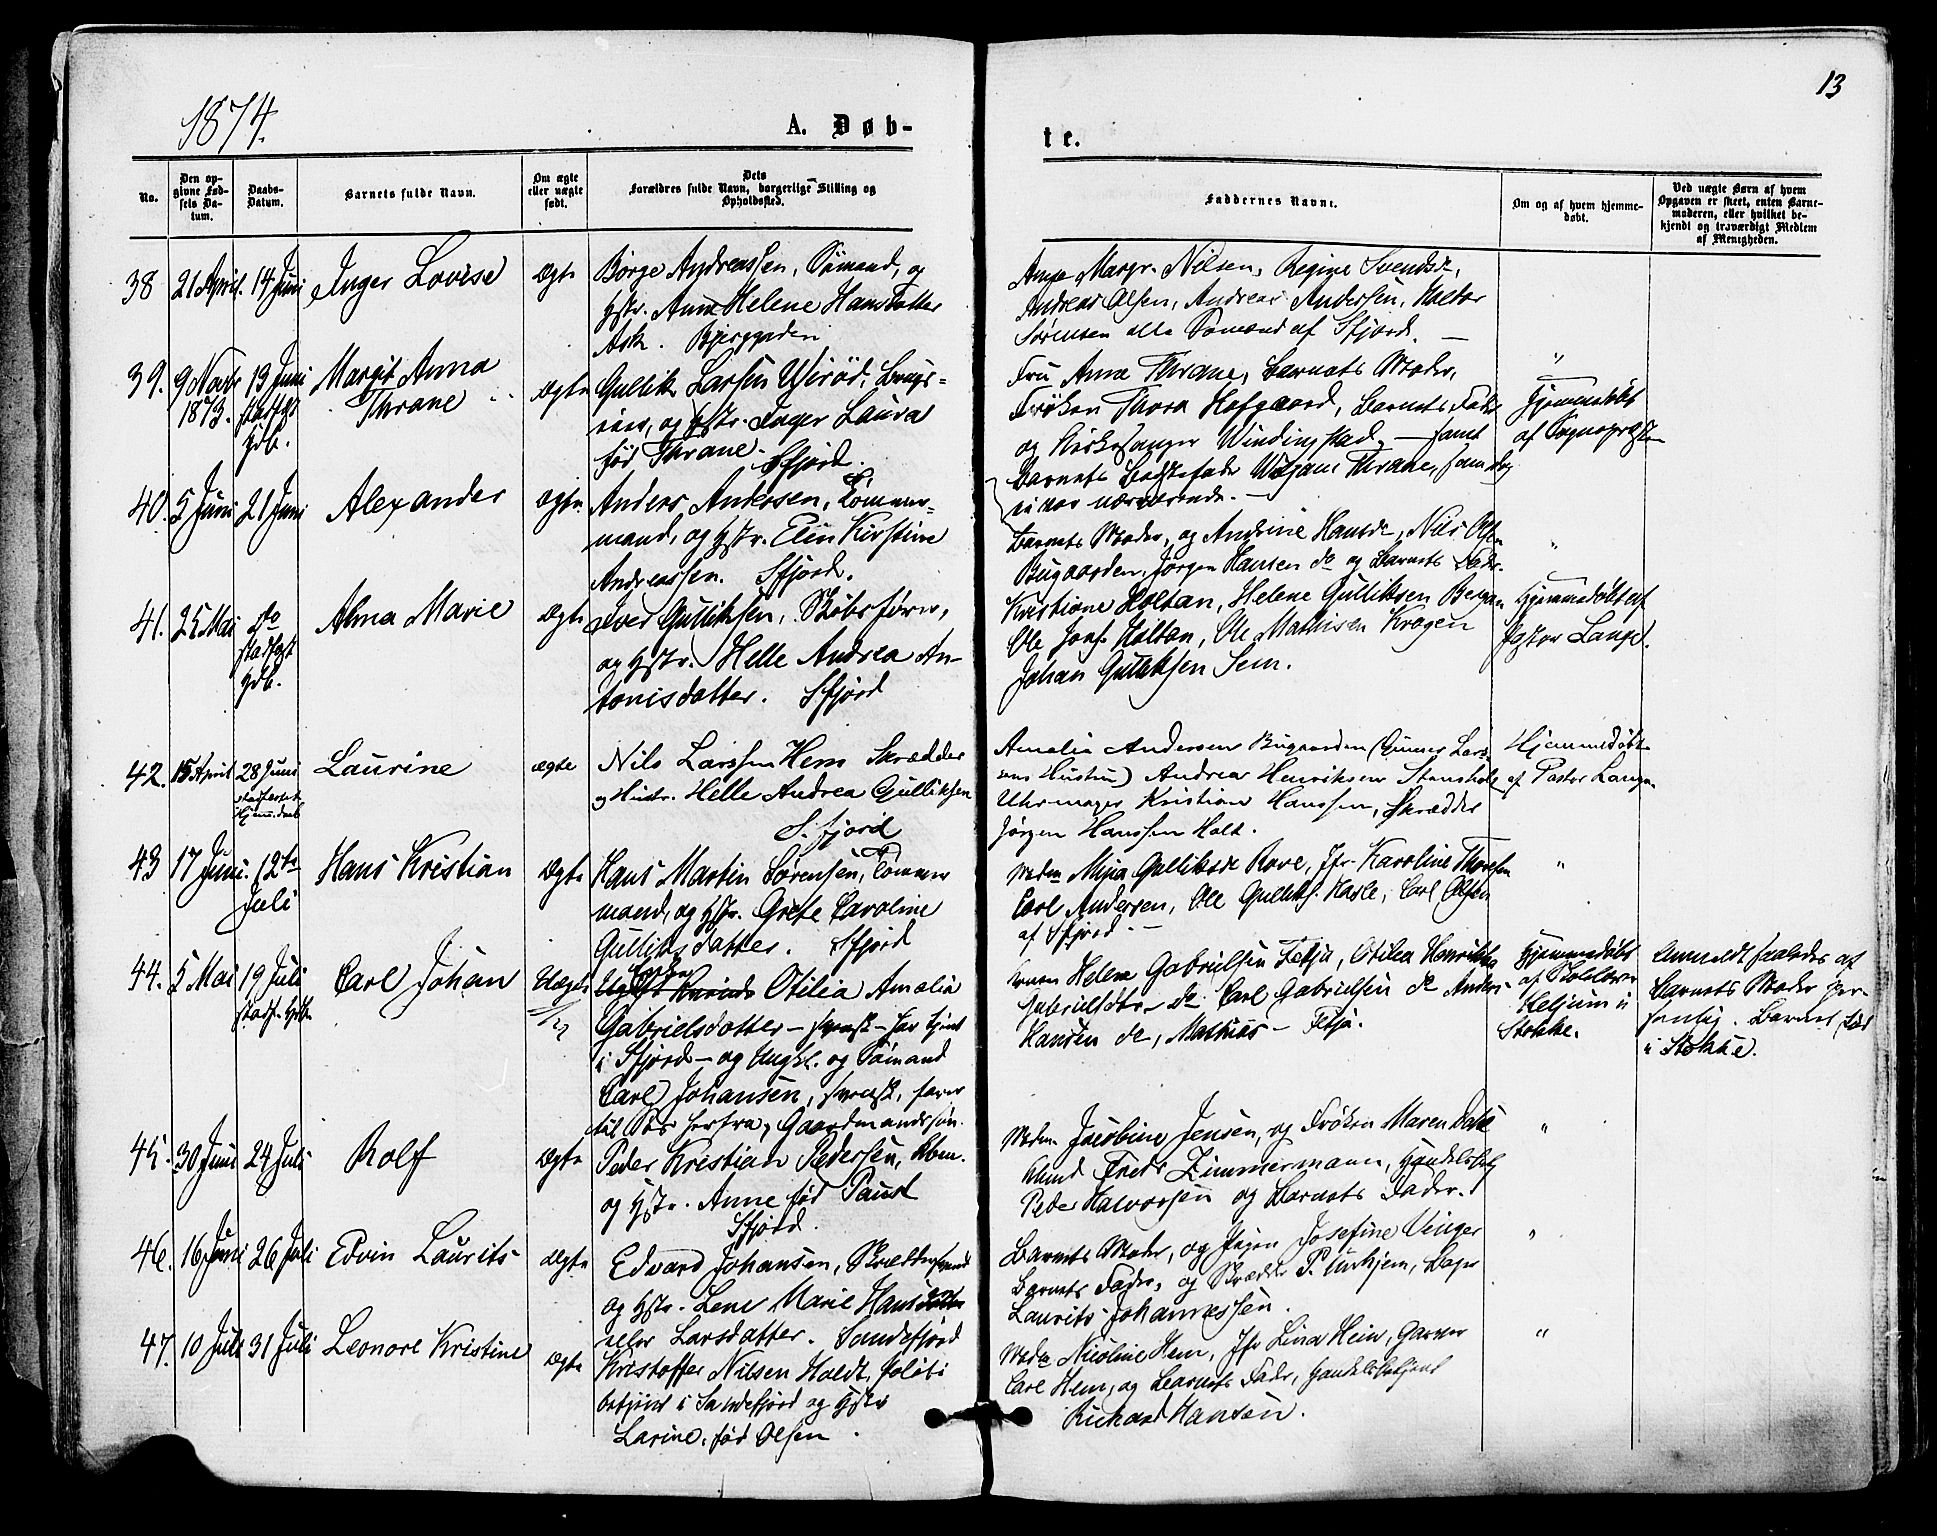 13
1874.
A. Døb-
te.
No.
Den op-
givne Fød-
sels Da-
tum.
Daabs-
Datum.
Barnets fulde Navn.
Om ægte
eller uægte
født.
Dets
Forældres fulde Navn, borgerlige Stilling og
Opholdssted.
Faddernes Navne.
Om og af hvem hjemme-
døbt.
Ved uægte Børn af hvem
Opgaven er skeet, enten Barne-
moderen, eller hvilket be-
kjendt og troværdigt Medlem
af Menigheden.
38 21 April. 14 Juni Inger Lovise Ægte
Børge Andreassen, Sømand, og
Hstr. Anne Helene Hansdatter
Ask. Bjerggaden
Anne Margr. Nilsen, Regine Svendsd.,
Andreas Olsen, Andreas Andersen, Halvor
Sørensen alle Sømænd af Sfjord.
39. 9 Novr 1873. 13 Juni stadfgt Hdb.
Margit Anna
Thrane
Ægte
Gullik Larsen Wirød,
og Hstr. Inger Laura
født Thrane.
Sfjord.
Fru Anna Thrane, Barnets Moder,
Frøken Thora Hofgaard, Barnets Fader
og Kirkesanger Windingstad, - samt
Barnets Bedstefader Thrane, som dog
ei var nærværende. -
"
Hjemmedøbt
af Sognepræsten
40. 5 Juni 21 Juni Alexander Ægte
Anders Andersen, Tømmer-
mand, og Hstr. Elin Kirstine
Andreassen. Sfjord.
Barnets Moder, og Andrine Hansdr, Nils Olsen
Bugaarden, Jørgen Hansen do og Barnets Fader.
"
41. 25 Mai do stadfæst Hdb.
Alma Marie Ægte
Iver Gulliksen, Skibsfører,
og Hstr. Helle Andrea An-
tonisdatter. Sfjord
Kristiane Holtan, Helene Gulliksen Bergan
Ole Jons. Holtan, Ole Mathisen Krogen
Johan Gulliksen Sem.
Hjemmedøbt af
Pastor Lange.
42. 15 April 28 Juni stadfæstet Hjem. daab
Laurine ægte
Nils Larssen Hem Skrædder
og Hustr. Helle Andrea Gulliksen
S. fjord
Amalie Andersen Bugaarden (Gunner Lars-
sens Hustru) Andrea Henriksen Stensholt
Uhrmager Kristian Hanssen, Skrædder
Jørgen Hanssen Holt.
Hjemmedøbt
af Pastor Lange
43 17 Juni. 12te Juli
Hans Kristian Ægte
Hans Martin Sørensen, Tømmer
mand, og Hstr. Grete Caroline
Gulliksdatter. Sfjord
Madm Mina Gulliksd. Rove, Jfr. Karoline Thoresen
Carl Andersen, Ole Gulliks. Hasle, Carl Olsen
af Sfjord. -
"
44. 5 Mai 19 Juli stadf. Hdb.
Carl Johan Uægte
Otilia Amalia
Gabrielsdatter - svensk - har tjent
i Sfjord - og Ungkl. og Sømand
Carl Johansen, svensk, farer
til Søs herfra, Gaardmandssøn.
Konen Helene Gabrielsen Fetja, Otilia Henrikka
Gabrielsdtr. do Carl Gabrielsen do Anders
Hansen do, Mathias - Fetja.
Hjemmedøbt
af Skolelærer
i
Stokke.
Anmeldt saaledes af
Barnets Moder per-
sonlig. Barnet født
i Stokke.
45. 30 Juni 24 Juli Rolf Ægte
Peder Kristian Pedersen,
og Hstr. Anne født Paust
Sfjord.
Madm. Jacobine Jensen, og Frøken Maren Dahl
Fredr Zimmermann, Handelsbetj
Peder Halvorsen og Barnets Fader.
"
46. 16 Juni 26 Juli Edvin Laurits Ægte
Edvard Johansen, Skræddersvend
og Hstr. Lene Marie Hansdatter
eller Larsdatter. Sandefjord
Barnets Moder, og Pigen Josefine Vinger
Barnets Fader, og Skrædder P. Unhjem, Bager
Laurits Johannessen.
"
47. 10 Juli 31 Juli Leonore Kristine Ægte
Kristoffer Nilsen Holdt, Politi
betjent i Sandefjord og Hstr
Larine, født Olsen.
Madm Nicoline Hem, Jfr Lina Hein, Garver
Carl Hem, og Barnets Fader, Handelsbetjent
Richard Hansen.
"